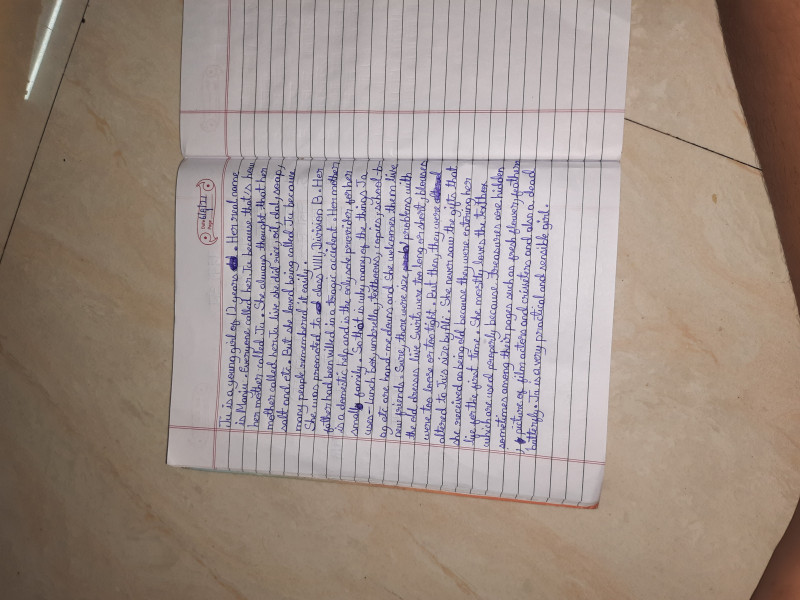 Ju is a young girl of 12 years. Her real name
is Manju. Everyone called her Ju because that's how
her mother called Ju. She always thought that her
mother called her Ju like she did rice, oil, dal, soap,
salt and etc. But she loved being called Ju because
many people remembered it easily.
She was promoted to class VIII, Division B. Her
father had been killed in a tragic accident. Her mother
is a domestic help and is the only sole provider for her
small family. So that is why many of the things Ju
uses - lunch box, umbrella, textbooks, copies, school b-
ag etc are hand me downs and she welcomes them like
new friends. Sure, there were size problems with
the old dresses like Skirts were too long or short, blouses
were too loose or too tight. But then, they were
altered to Ju's size by
she received as being old because they were entering her
life for the first time. She mostly loves the textbook
which are used properly because treasures are hidden
sometimes among their pages such as fresh flower, feathers
, picture of film actors and cricketers and also a dead
butterfly. Ju is a very practical and sensible girl.